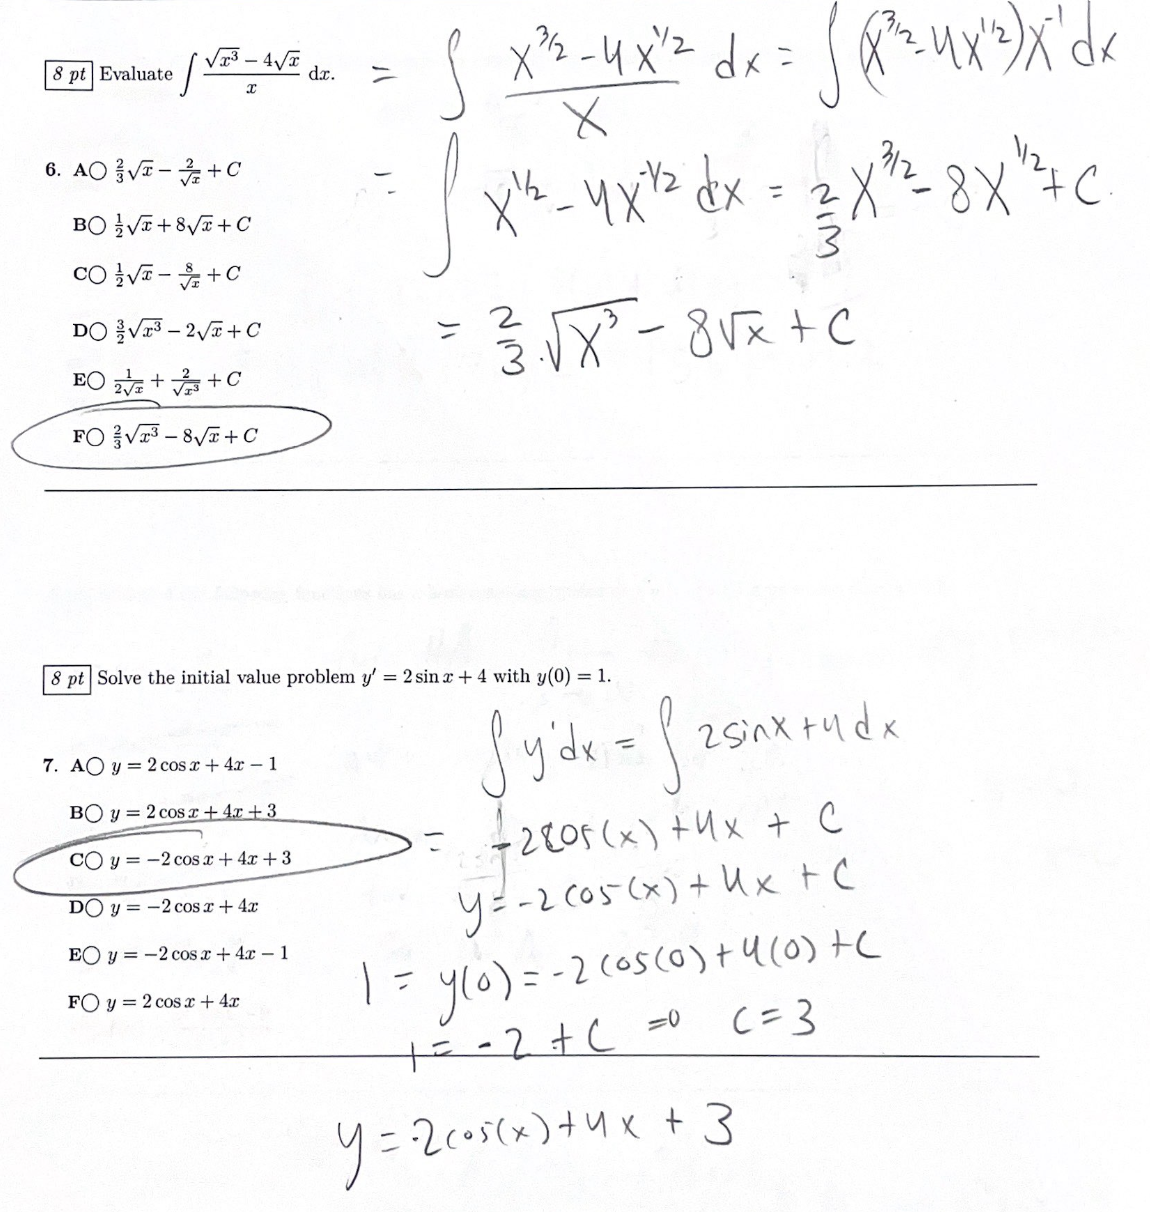 8 pt Evaluate ∫ (√x³ − 4√x)/x dx. = ∫ (x^3/2 − 4x^1/2)/x dx = ∫ (x^3/2 − 4x^1/2)x^-1 dx
= ∫ x^1/2 − 4x^-1/2 dx = 2/3 x^3/2 − 8x^1/2 + C.
= 2/3 · √x³ − 8√x + C
6. A○ 2/3 √x − 2/√x + C
B○ 1/2 √x + 8√x + C
C○ 1/2 √x − 8/√x + C
D○ 3/2 √x³ − 2√x + C
E○ 1/(2√x) + 2/√x³ + C
F○ 2/3 √x³ − 8√x + C
8 pt Solve the initial value problem y′ = 2 sin x + 4 with y(0) = 1.
∫ y′dx = ∫ 2sinx + 4 dx
= -2cos(x) + 4x + C
y = -2cos(x) + 4x + C
1 = y(0) = -2cos(0) + 4(0) + C
1 = -2 + C ⇒ C = 3
7. A○ y = 2 cos x + 4x − 1
B○ y = 2 cos x + 4x + 3
C○ y = −2 cos x + 4x + 3
D○ y = −2 cos x + 4x
E○ y = −2 cos x + 4x − 1
F○ y = 2 cos x + 4x
y = -2cos(x) + 4x + 3